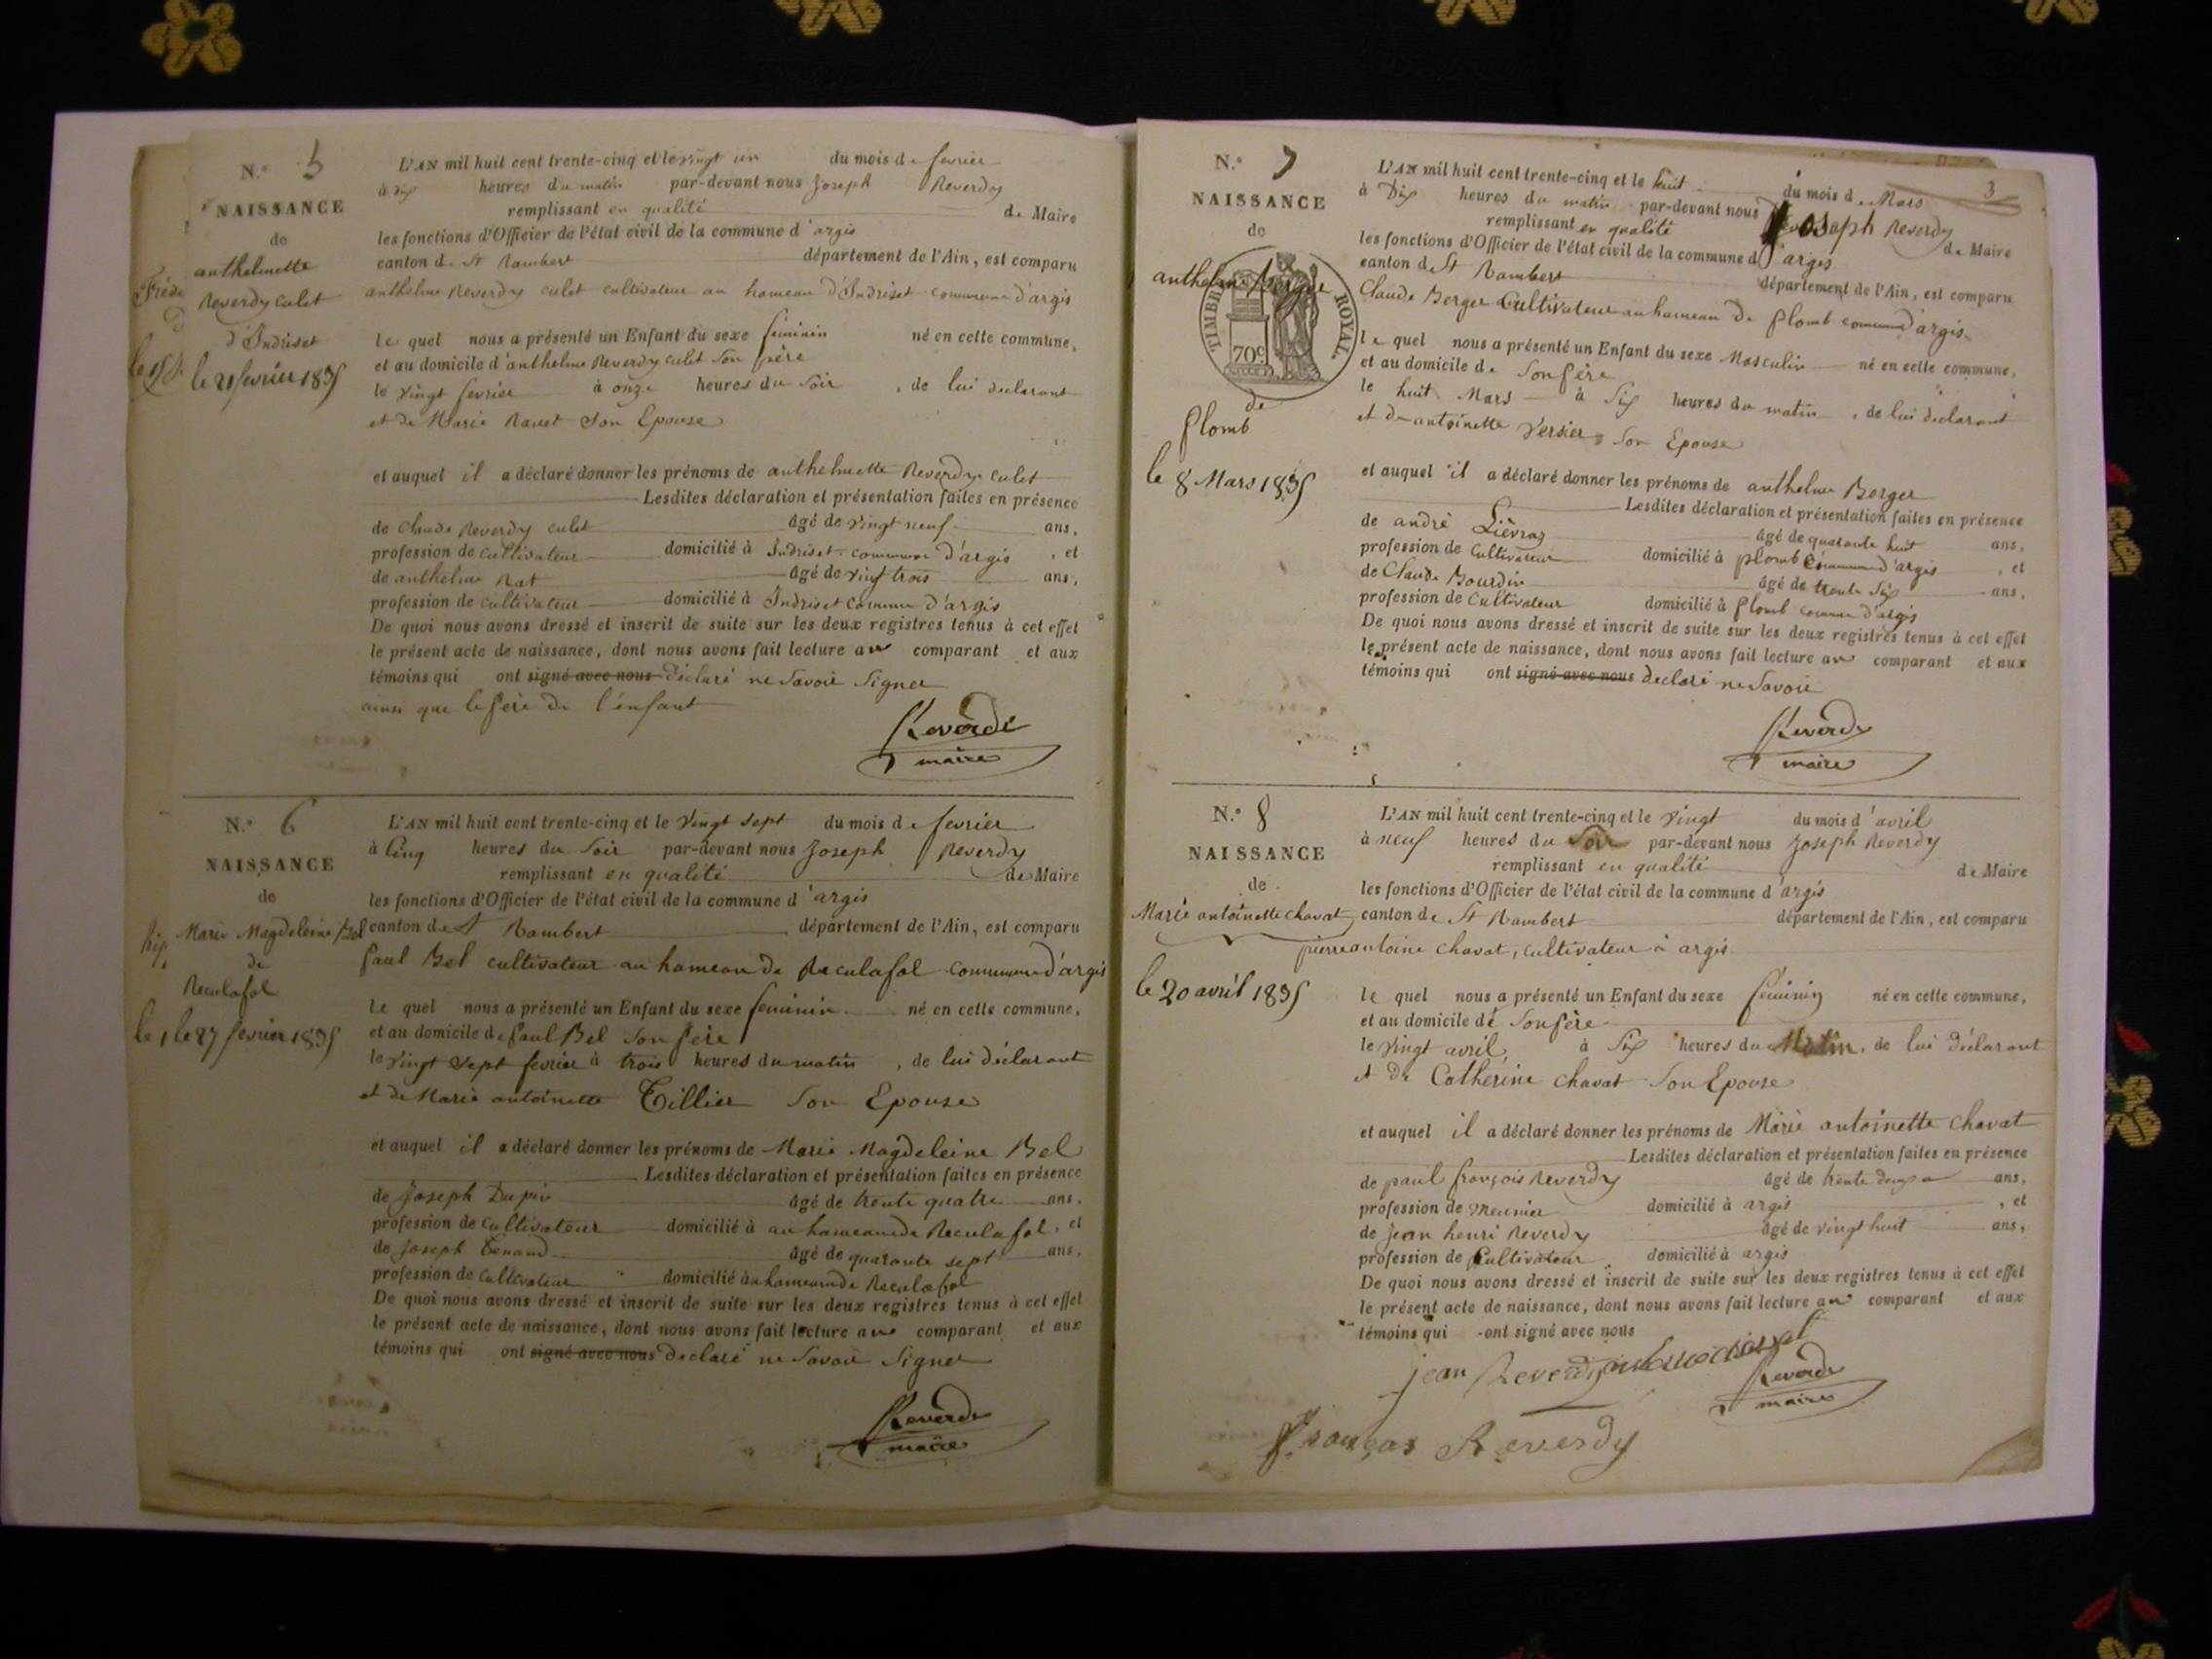 N.° 5
NAISSANCE
de
anthelmette
Reverdy culet
d'Indriset
le 21 fevrier 1835
L'AN mil huit cent trente-cinq et le vingt un du mois de fevrier
à dix heures du matin par-devant nous Joseph Reverdy
remplissant en qualité de Maire
les fonctions d'Officier de l'état civil de la commune d'argis
canton de St Rambert département de l'Ain, est comparu
anthelme Reverdy culet cultivateur au hameau d'Indriset commune d'argis
le quel nous a présenté un Enfant du sexe feminin né en cette commune,
et au domicile d'anthelme Reverdy culet son père
le vingt fevrier à onze heures du soir, de lui declarant
et de Marie Ravet son Epouse
et auquel il a déclaré donner les prénoms de anthelmette Reverdy culet
Lesdites déclaration et présentation faites en présence
de Claude Reverdy culet âgé de vingt neuf ans,
profession de cultivateur domicilié à Indriset commune d'argis, et
de anthelme Rat âgé de vingt trois ans,
profession de cultivateur domicilié à Indriset commune d'argis
De quoi nous avons dressé et inscrit de suite sur les deux registres tenus à cet effet
le présent acte de naissance, dont nous avons fait lecture au comparant et aux
témoins qui ont signé avec nous déclaré ne savoir signer
ainsi que le père de l'enfant
Reverdi
maire
N.° 6
NAISSANCE
de
Marie Magdeleine Bel
de
Reculafol
le 27 fevrier 1835
L'AN mil huit cent trente-cinq et le vingt sept du mois de fevrier
à cinq heures du soir par-devant nous Joseph Reverdy
remplissant en qualité de Maire
les fonctions d'Officier de l'état civil de la commune d'argis
canton de St Rambert département de l'Ain, est comparu
paul Bel cultivateur au hameau de Reculafol commune d'argis
le quel nous a présenté un Enfant du sexe feminin né en cette commune,
et au domicile de paul Bel son père
le vingt sept fevrier à trois heures du matin, de lui déclarant
et de Marie antoinette Tillier son Epouse
et auquel il a déclaré donner les prénoms de Marie Magdeleine Bel
Lesdites déclaration et présentation faites en présence
de Joseph Dupin âgé de trente quatre ans,
profession de cultivateur domicilié à au hameau de Reculafol, et
de Joseph Tenand âgé de quarante sept ans,
profession de cultivateur domicilié à au hameau de Reculafol
De quoi nous avons dressé et inscrit de suite sur les deux registres tenus à cet effet
le présent acte de naissance, dont nous avons fait lecture au comparant et aux
témoins qui ont signé avec nous declaré ne savoir signer
Reverdi
maire
3
N.° 7
NAISSANCE
de
anthelme Berger
TIMBRE ROYAL.
70c
de
plomb
le 8 Mars 1835
L'AN mil huit cent trente-cinq et le huit du mois de Mars
à Dix heures du matin par-devant nous Joseph Reverdy
remplissant en qualité de Maire
les fonctions d'Officier de l'état civil de la commune d'argis
canton de St Rambert département de l'Ain, est comparu
Claude Berger Cultivateur au hameau de plomb commune d'argis
le quel nous a présenté un Enfant du sexe Masculin né en cette commune,
et au domicile de son père
le huit Mars à six heures du matin, de lui déclarant
et de antoinette Versier son Epouse
et auquel il a déclaré donner les prénoms de anthelme Berger
Lesdites déclaration et présentation faites en présence
de andré Lièvraz âgé de quarante huit ans,
profession de Cultivateur domicilié à plomb commune d'argis, et
de Claude Bourdin âgé de trente six ans,
profession de Cultivateur domicilié à plomb commune d'argis
De quoi nous avons dressé et inscrit de suite sur les deux registres tenus à cet effet
le présent acte de naissance, dont nous avons fait lecture au comparant et aux
témoins qui ont signé avec nous declaré ne savoir
Reverdy
maire
N.° 8
NAISSANCE
de
Marie antoinette chavat
le 20 avril 1835
L'AN mil huit cent trente-cinq et le vingt du mois d'avril
à neuf heures du soir par-devant nous Joseph Reverdy
remplissant en qualité de Maire
les fonctions d'Officier de l'état civil de la commune d'argis
canton de St Rambert département de l'Ain, est comparu
pierre antoine chavat, cultivateur à argis
le quel nous a présenté un Enfant du sexe feminin né en cette commune,
et au domicile de son père
le vingt avril, à six heures du Matin, de lui déclarant
et de Catherine chavat son Epouse
et auquel il a déclaré donner les prénoms de Marie antoinette chavat
Lesdites déclaration et présentation faites en présence
de paul françois Reverdy âgé de trente deux ans,
profession de meunier domicilié à argis, et
de jean henri Reverdy âgé de vingt huit ans,
profession de Cultivateur domicilié à argis
De quoi nous avons dressé et inscrit de suite sur les deux registres tenus à cet effet
le présent acte de naissance, dont nous avons fait lecture au comparant et aux
témoins qui ont signé avec nous
jean Reverdy
Reverdi
maire
françois Reverdy